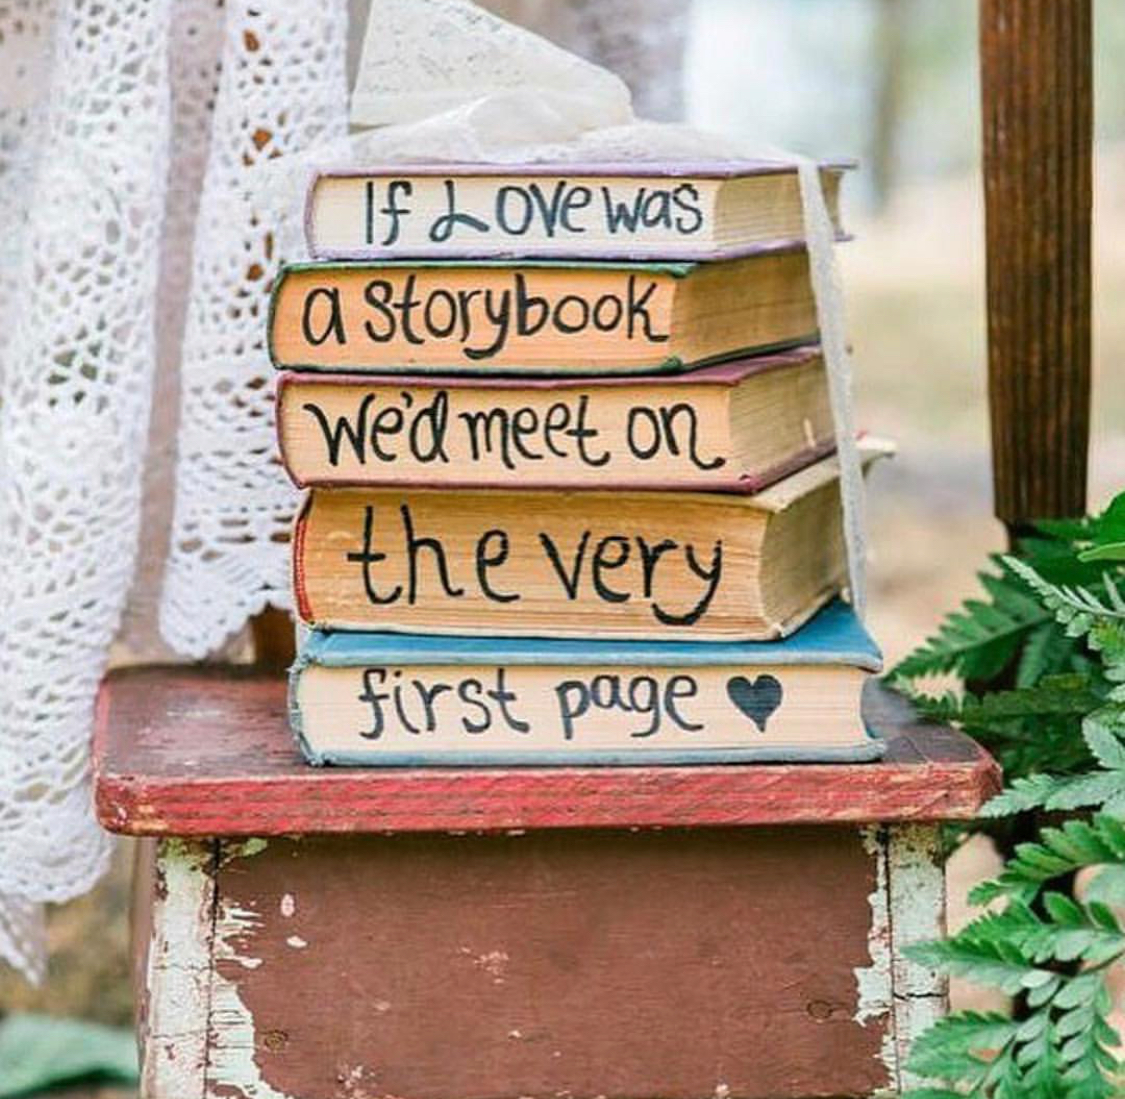 If Love was
a storybook
we'd meet on
the very
first page ♥